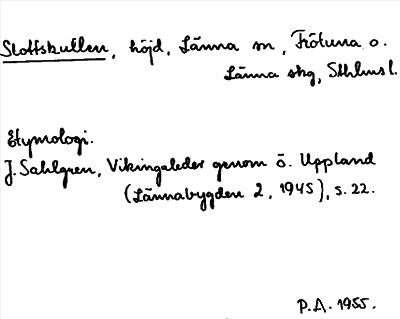 Slottskullen, höjd, Länna sn, Frötuna o.
Länna skg, Sthlms l.
Etymologi.
J. Sahlgren, Vikingaleder genom ö. Uppland
(Lännabygden 2, 1945), s. 22.
P.A. 1955.